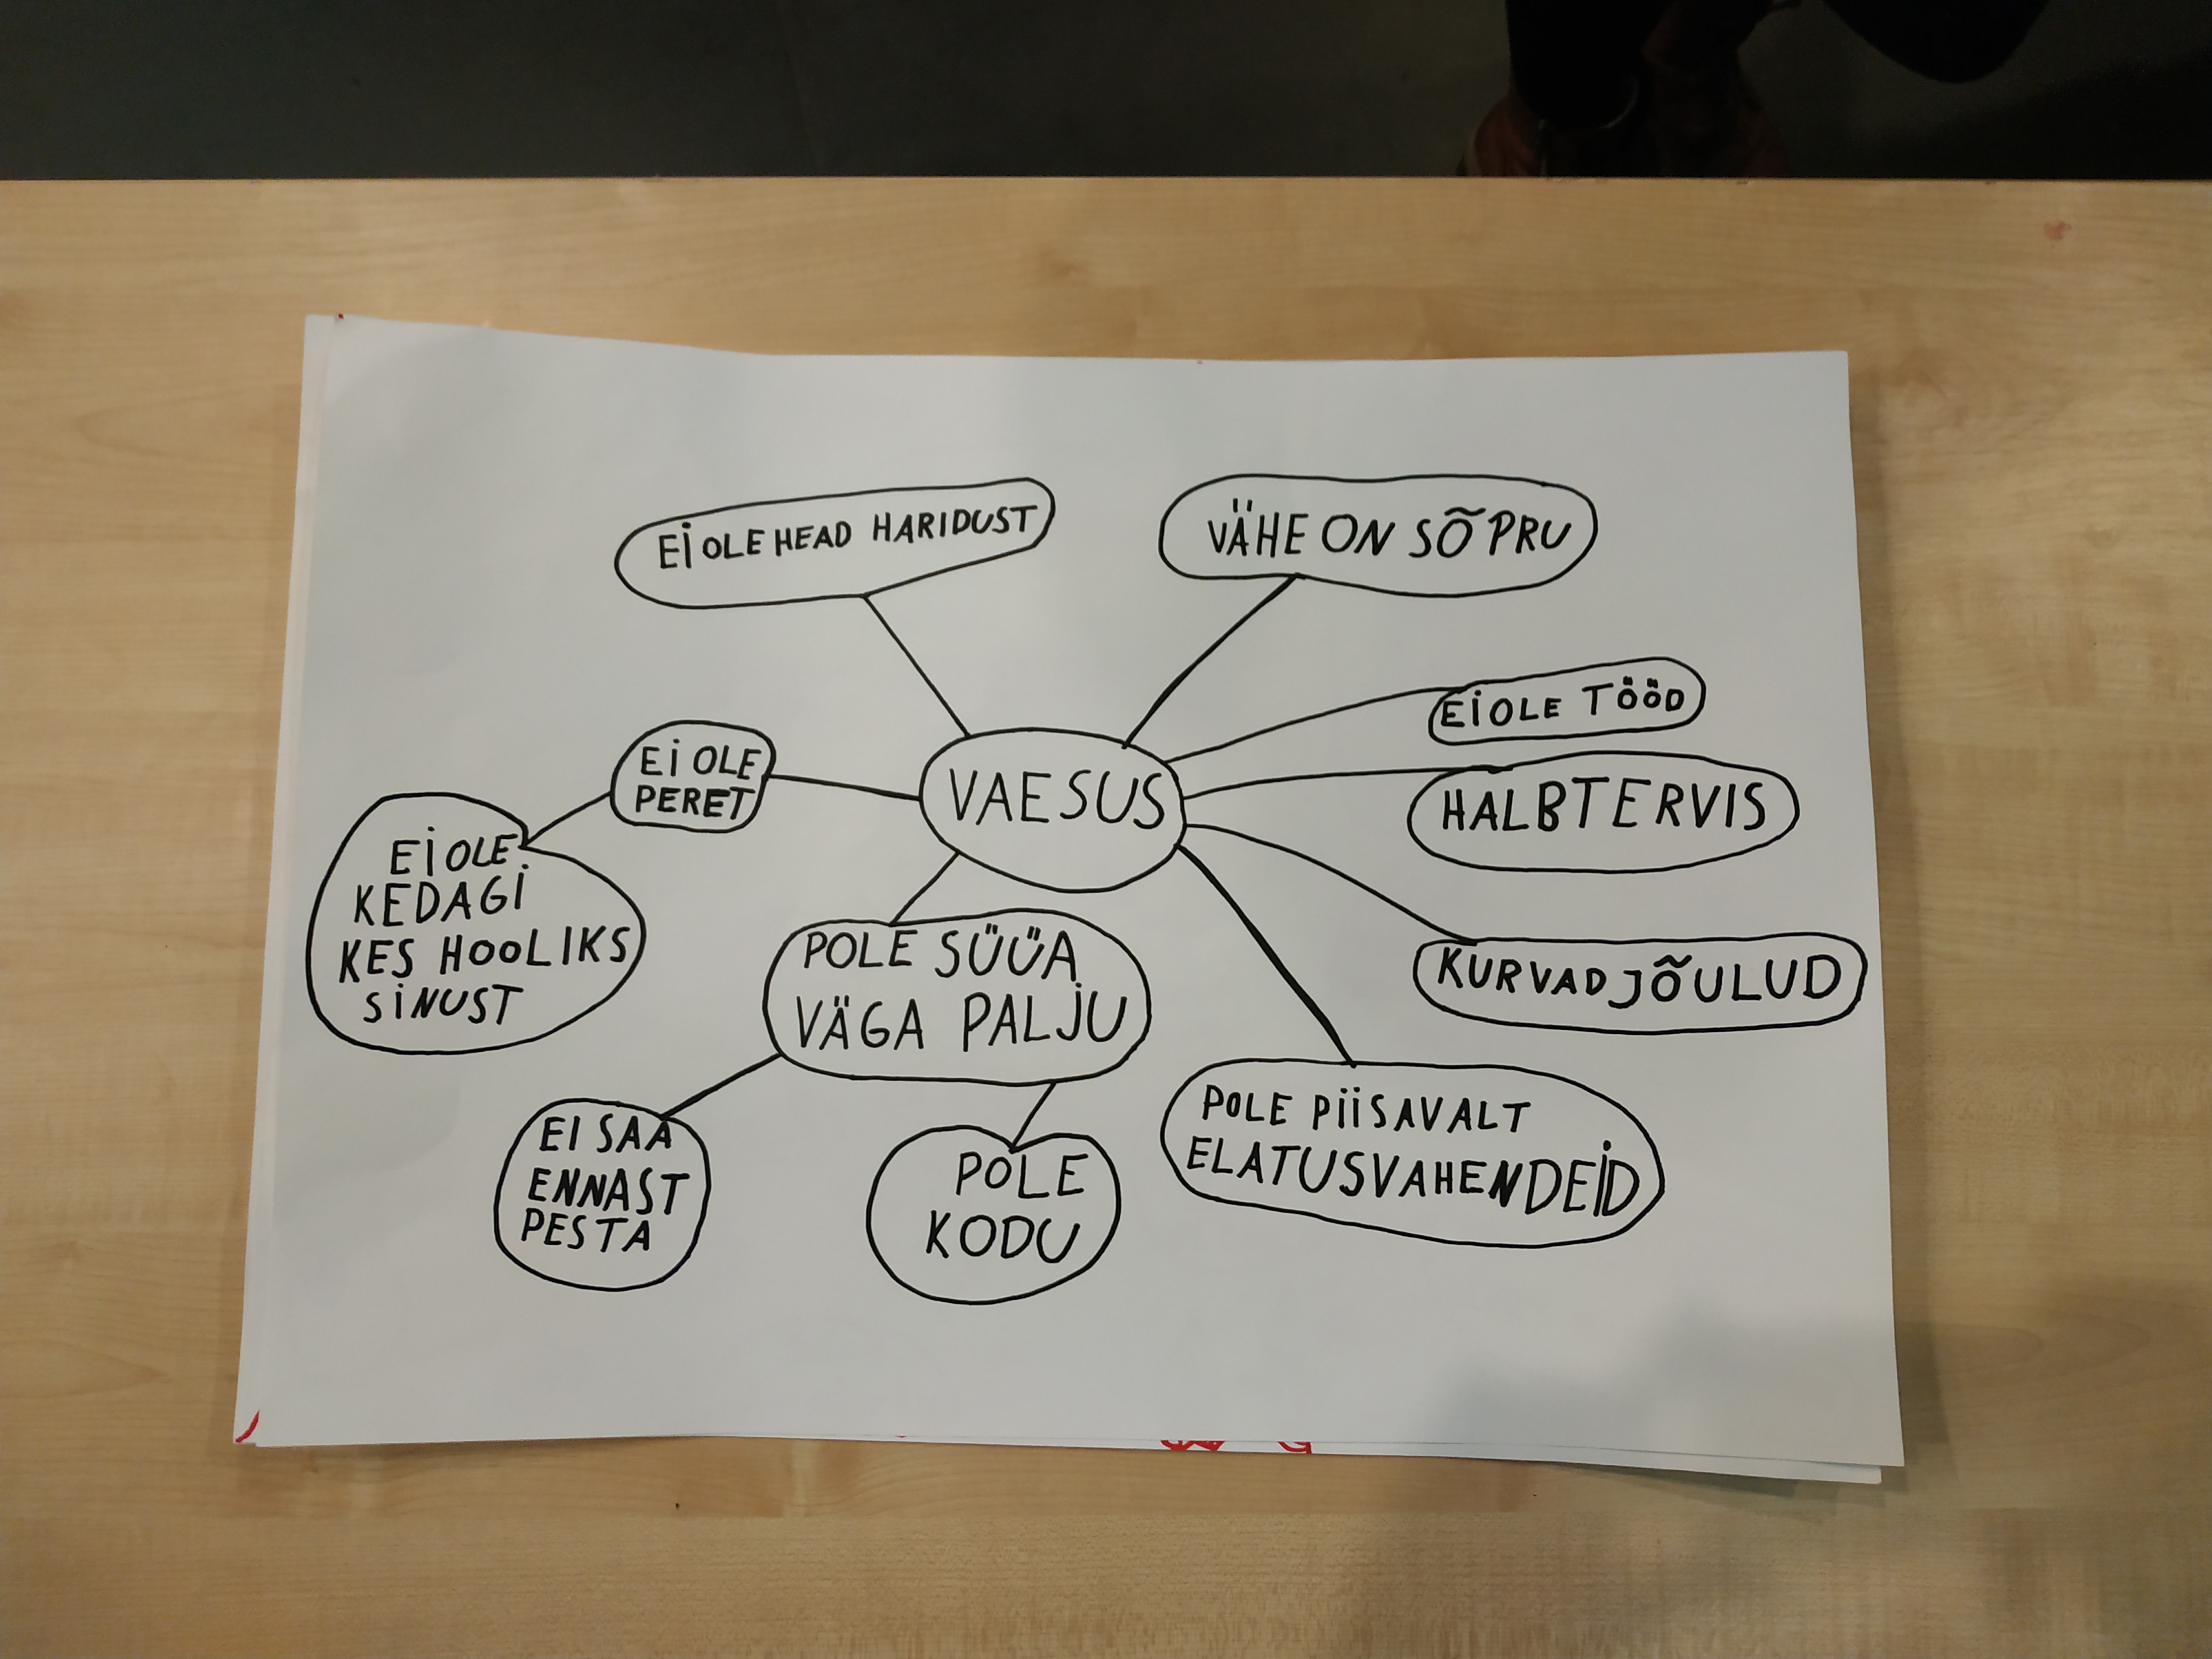 EI OLE HEAD HARIDUST
VÄHE ON SÕPRU
EI OLE TÖÖD
EI OLE
PERET
VAESUS
HALBTERVIS
EI OLE
KEDAGI
KES HOOLIKS
SINUST
POLE SÜÜA
VÄGA PALJU
KURVAD JÕULUD
EI SAA
ENNAST
PESTA
POLE
KODU
POLE PIISAVALT
ELATUSVAHENDEID